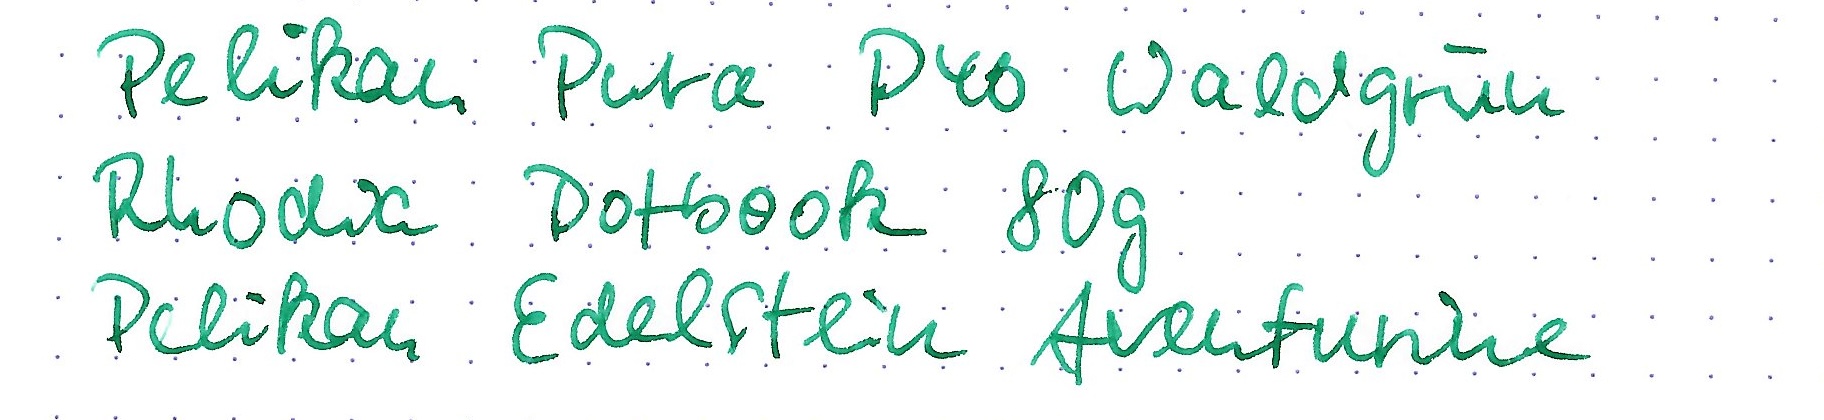 Pelikan Pura P40 Waldgrün
Rhodia Dotbook 80g
Pelikan Edelstein Aventurine